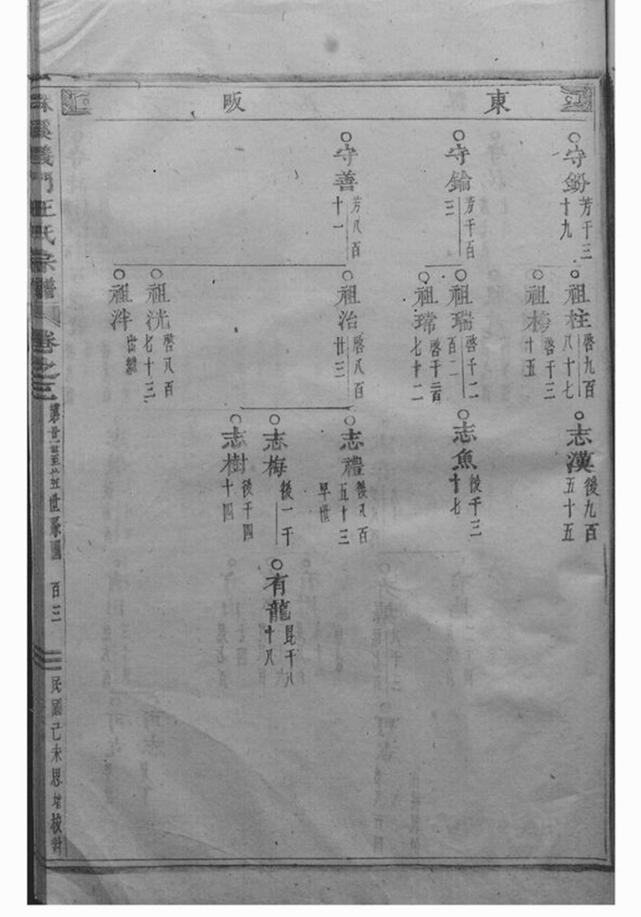 東 阪
守鈖 芳千三十九
守錀 芳千百三
守善 芳八百十一
祖柱 啓九百八十七
祖梣 啓千三十五
祖瑞 啓千二百二
祖瑺 啓千二百七十二
祖治 啓八百廿三
祖洸 啓八百七十三
祖泮 出繼
志漢 後九百五十五
志魚 後千三十七
志禮 後八百五十三 早世
志梅 後一千
志樹 後千四十四
有龍 昆千八十八
義門王氏宗譜
卷之三
百三
民國己未思堂校對